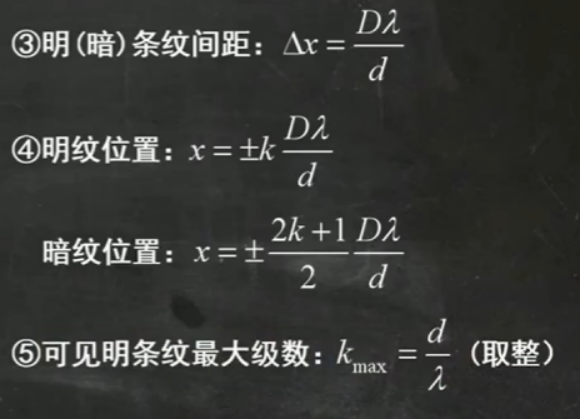 ③明(暗)条纹间距：Δx = Dλ/d
④明纹位置：x = ±k Dλ/d
暗纹位置：x = ± (2k+1)/2 Dλ/d
⑤可见明条纹最大级数：k_max = d/λ (取整)